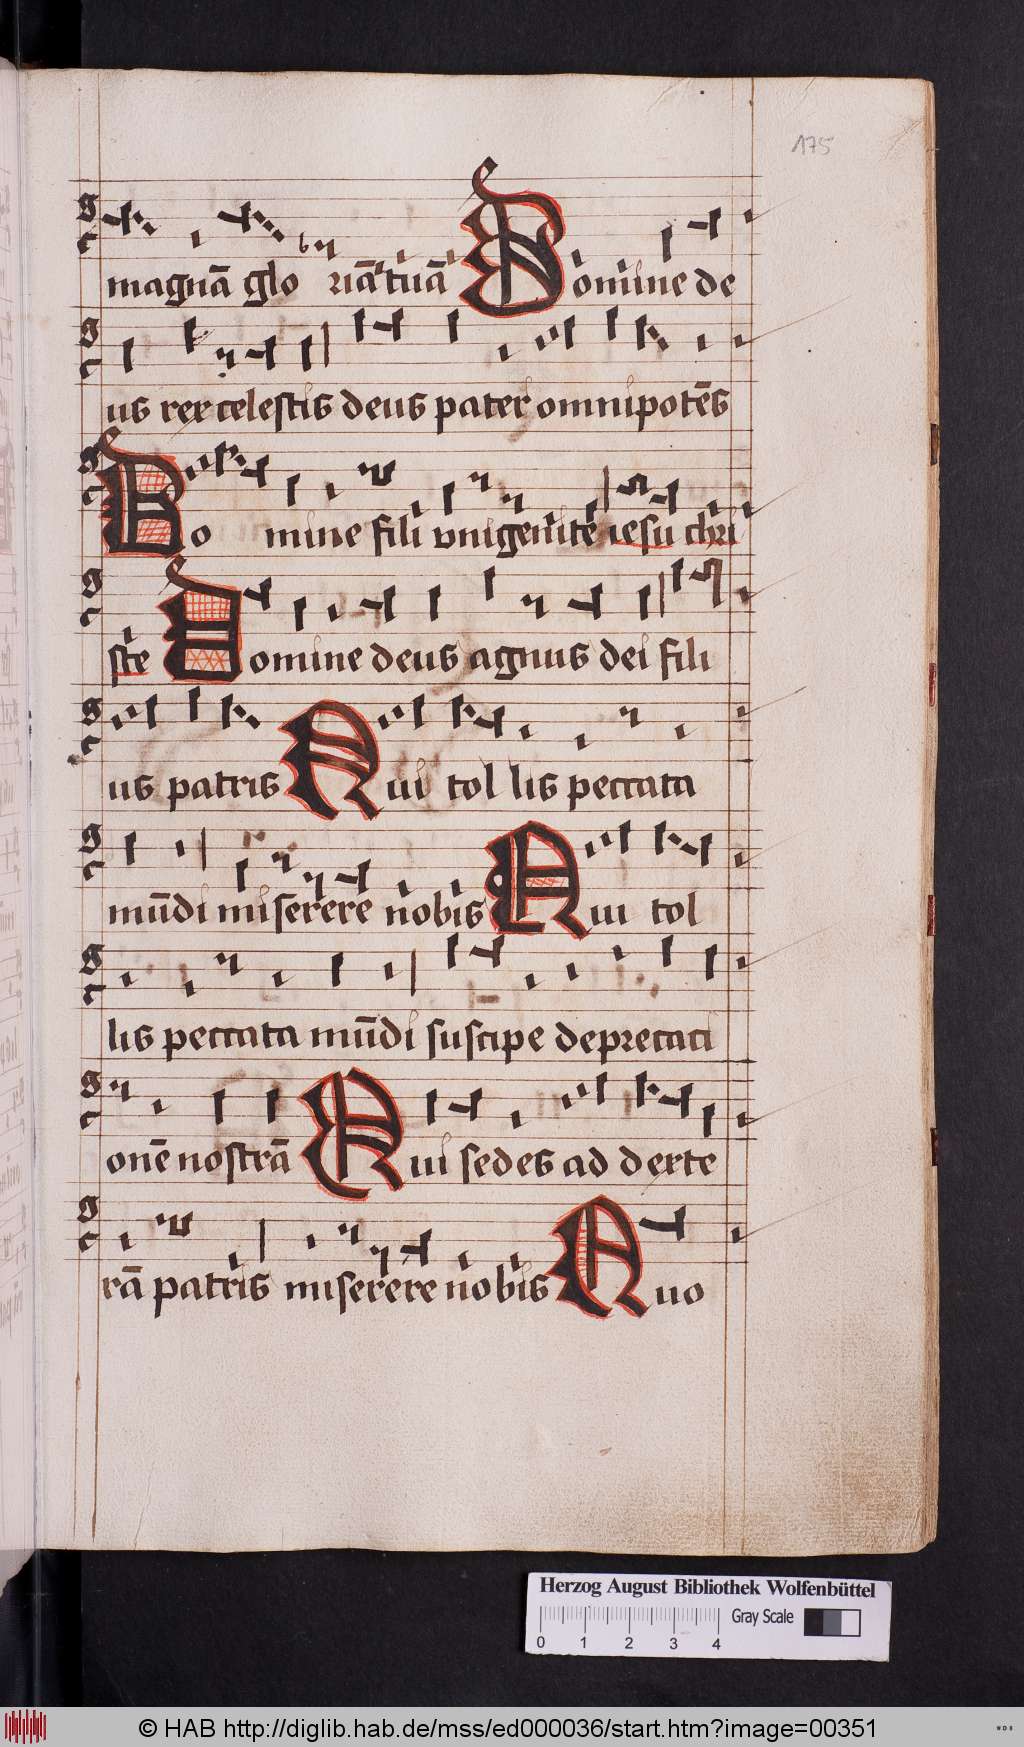 175
magnā glo riā tuā Domine de
us rex celestis deus pater omnipotēs
Do mine fili vnigenite iesu chri
ste Domine deus agnus dei fili
us patris Qui tol lis peccata
mūdi miserere nobis Qui tol
lis peccata mūdi suscipe deprecati
onē nostrā Qui sedes ad dexte
rā patris miserere nobis Quo
Herzog August Bibliothek Wolfenbüttel
Gray Scale
0 1 2 3 4
© HAB http://diglib.hab.de/mss/ed000036/start.htm?image=00351